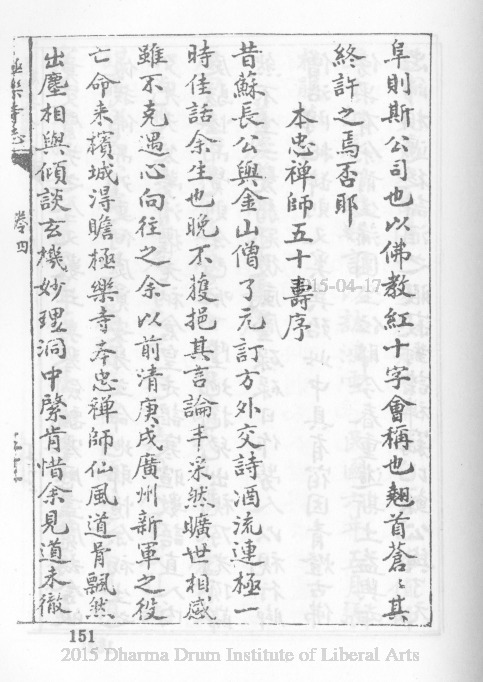 阜則斯公司也以佛教紅十字會稱也翹首蒼〻其
終許之焉否耶
本忠禅師五十壽序
昔蘇長公與金山僧了元訂方外交詩酒流連極一
時佳話余生也晚不獲挹其言論丰采然曠世相感
雖不克遇心向往之余以前清庚戌廣州新軍之役
亡命来檳城淂瞻極樂寺本忠禅師仙風道骨飄然
出塵相與傾談玄機妙理洞中綮肯惜余見道未徹
極樂寺志
卷四
151
2015-04-17
2015 Dharma Drum Institute of Liberal Arts